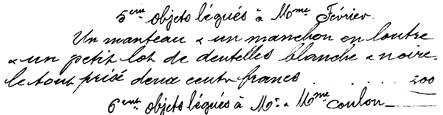 5ent objets légués à Mme Février.
Un manteau & un manchon en loutre
& un petit lot de dentelles blanche & noire
le tout prisé deux cent francs . . . . . 200
6ent objets légués à Mr & Mme Coulon